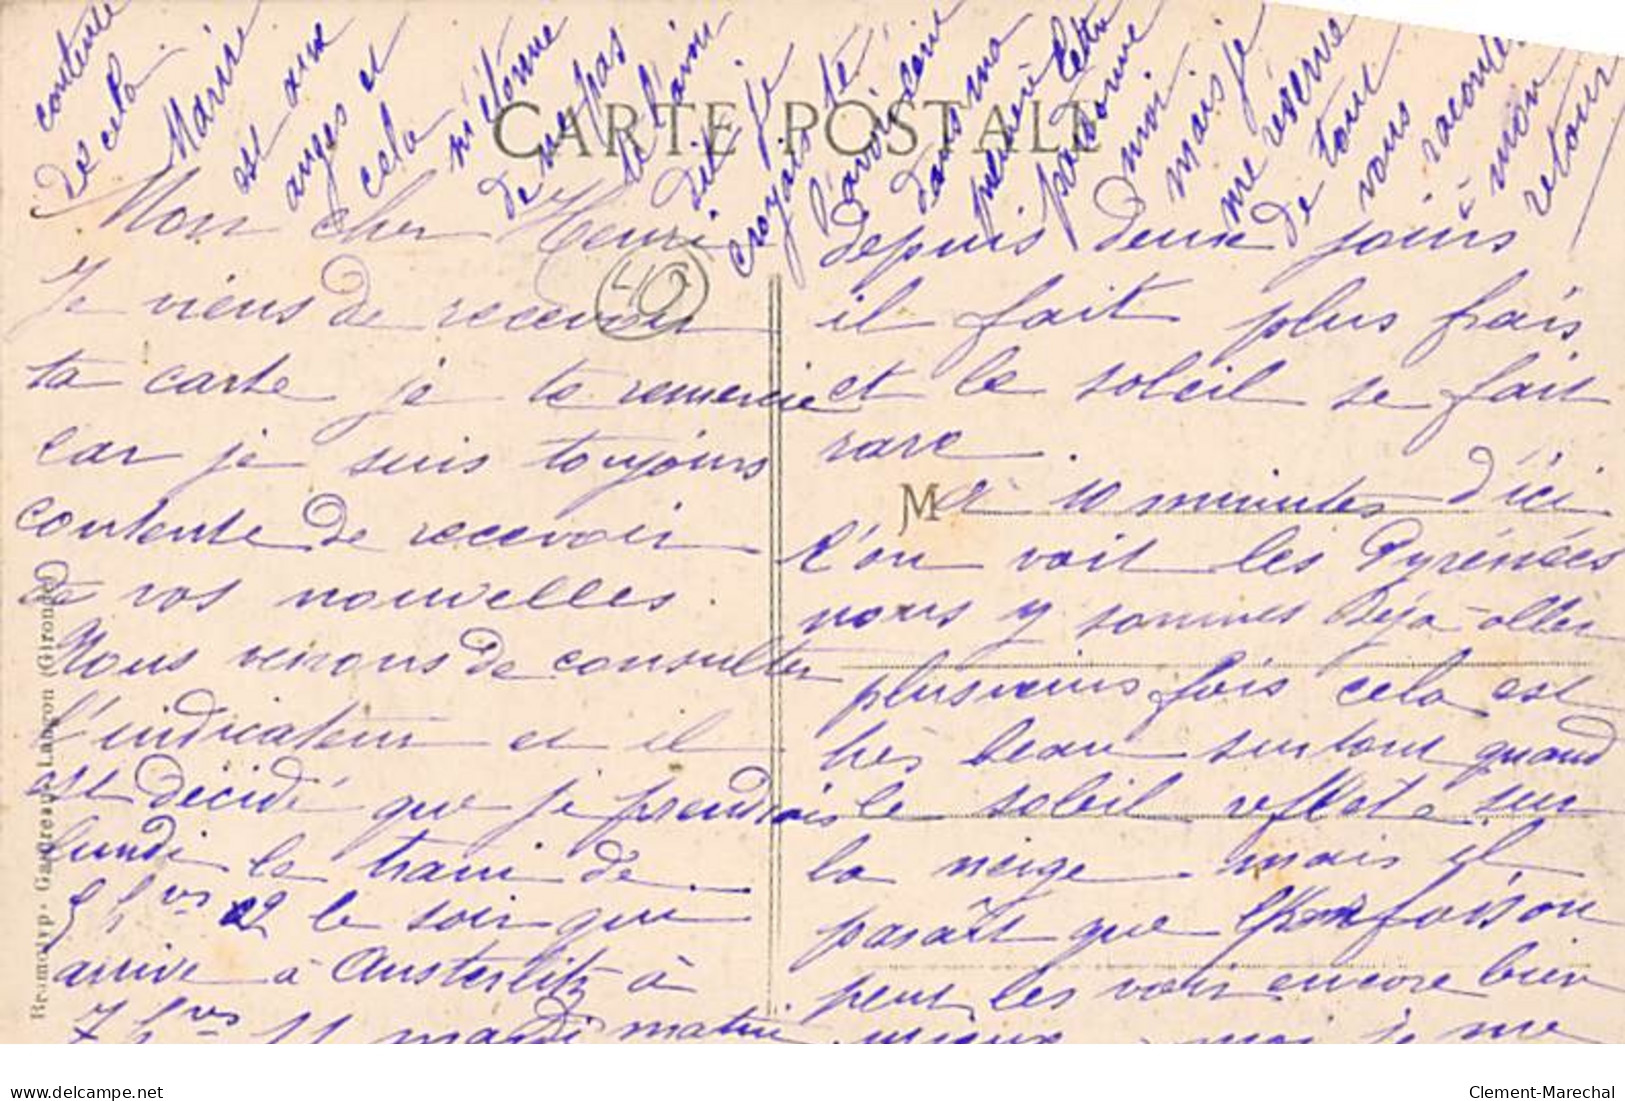 CARTE POSTALE
Mon cher Henri
Je viens de recevoir
ta carte je te remercie
car je suis toujours
contente de recevoir
de vos nouvelles.
Nous venons de consulter
l'indicateur et il
est décidé que je prendrais
lundi le train de
5 hrs 22 le soir qui
arrive à Austerlitz à
7 hrs 11 mardi matin
depuis deux jours
il fait plus frais
et le soleil se fait
rare.
M
à 10 minutes d'ici
l'on voit les Pyrénées
nous y sommes déjà aller
plusieurs fois cela est
très beau surtout quand
le soleil reflete sur
la neige mais il
paraît que foison
peut les voir encore bien
mieux moi je me
contente
de cela.
Marie
est aux
anges et
cela
m'étonne
de ne pas
te l'avoir
dit je
croyais te
l'avoir écrit
dans ma
première lettre
pardonne
moi
mais je
me réserve
de tout
vous raconter
à mon
retour
Beamoirp. Gautreau, Langon (Gironde)
Clement-Marechal
www.delcampe.net